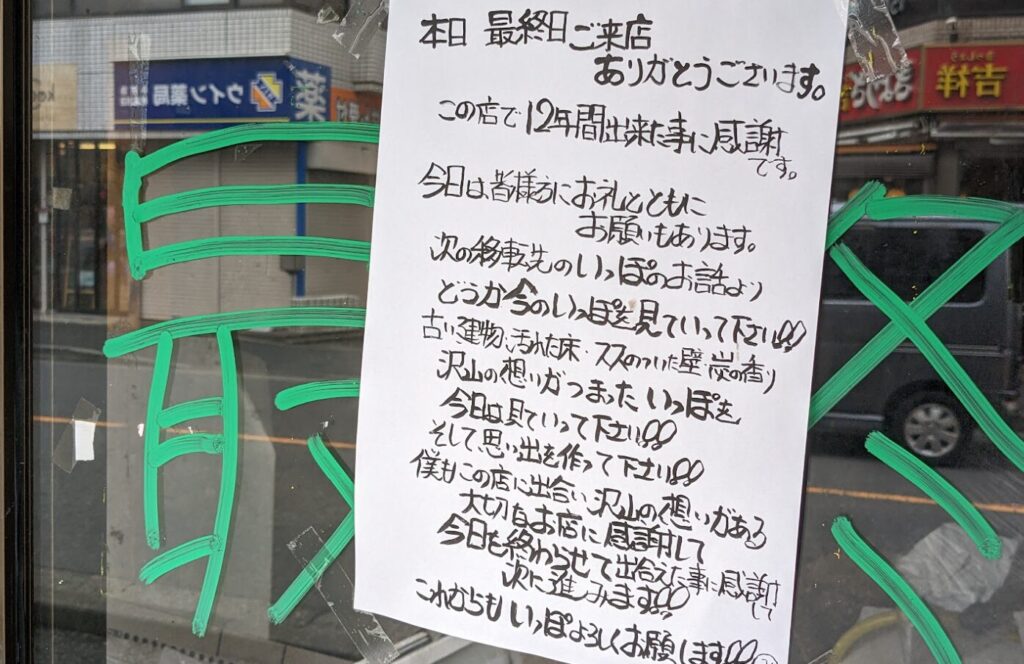 本日 最終日ご来店
ありがとうございます。
この店で12年間出来た事に感謝
です。
今日は、皆様方にお礼とともに
お願いもあります。
次の移転先のいっぽのお話より
どうか今のいっぽを見ていって下さい!!
古い建物、汚れた床・ススのついた壁・炭の香り
沢山の想いがつまったいっぽを
今日は見ていって下さい!!
そして思い出を作って下さい!!
僕もこの店に出合い、沢山の想いがある
大切なお店に感謝して
今日も終わらせて出会えた事に感謝して
次に進みます!!
これからもいっぽよろしくお願します!!
最終
ウイン薬局
薬
吉祥